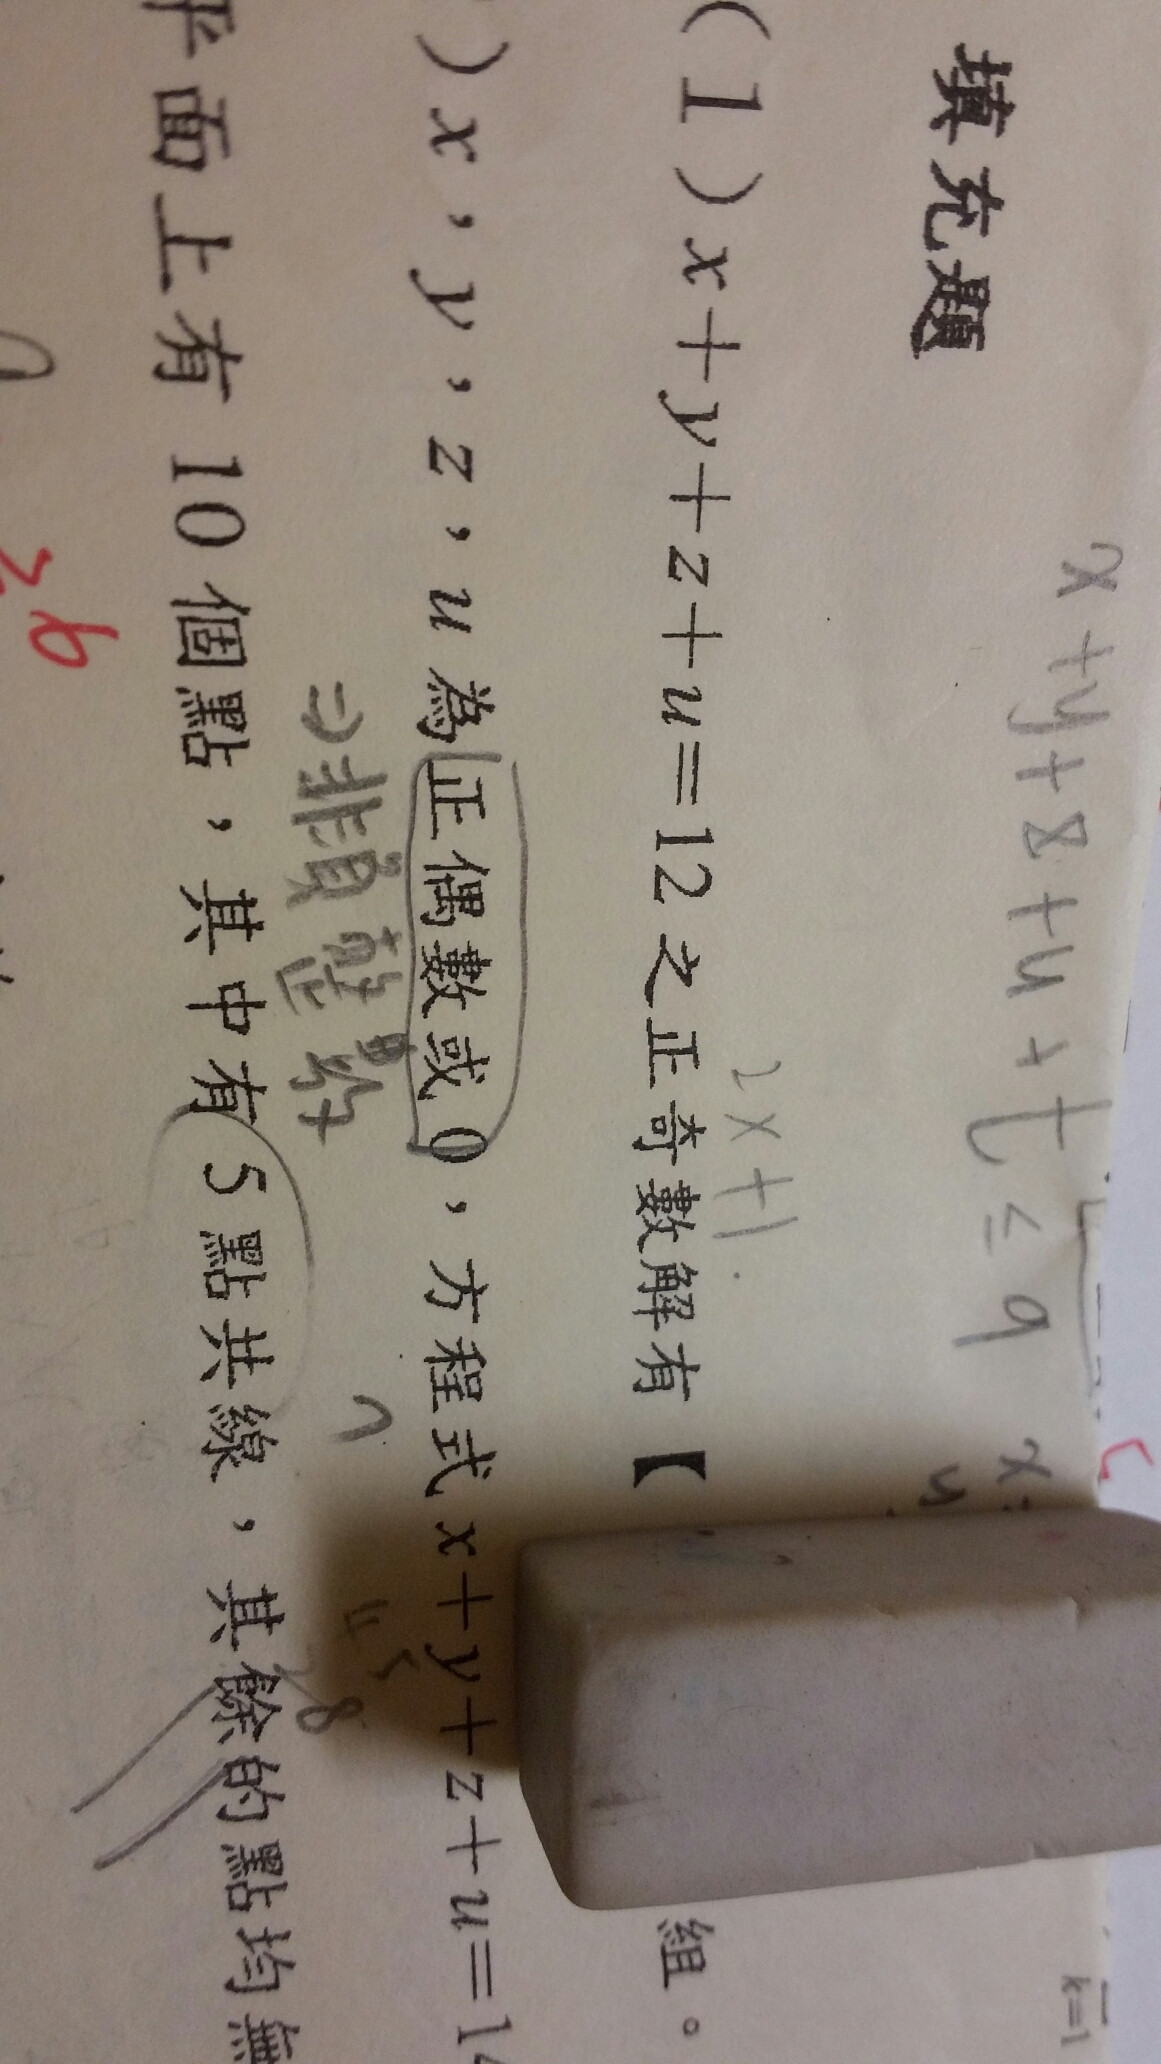 x+y+8+u+t≤9
填充題
2x+1
(1)x+y+z+u=12之正奇數解有【
組。
)x,y,z,u為正偶數或0,方程式x+y+z+u=14
⇒非負整數
平面上有10個點,其中有5點共線,其餘的點均無
k=1